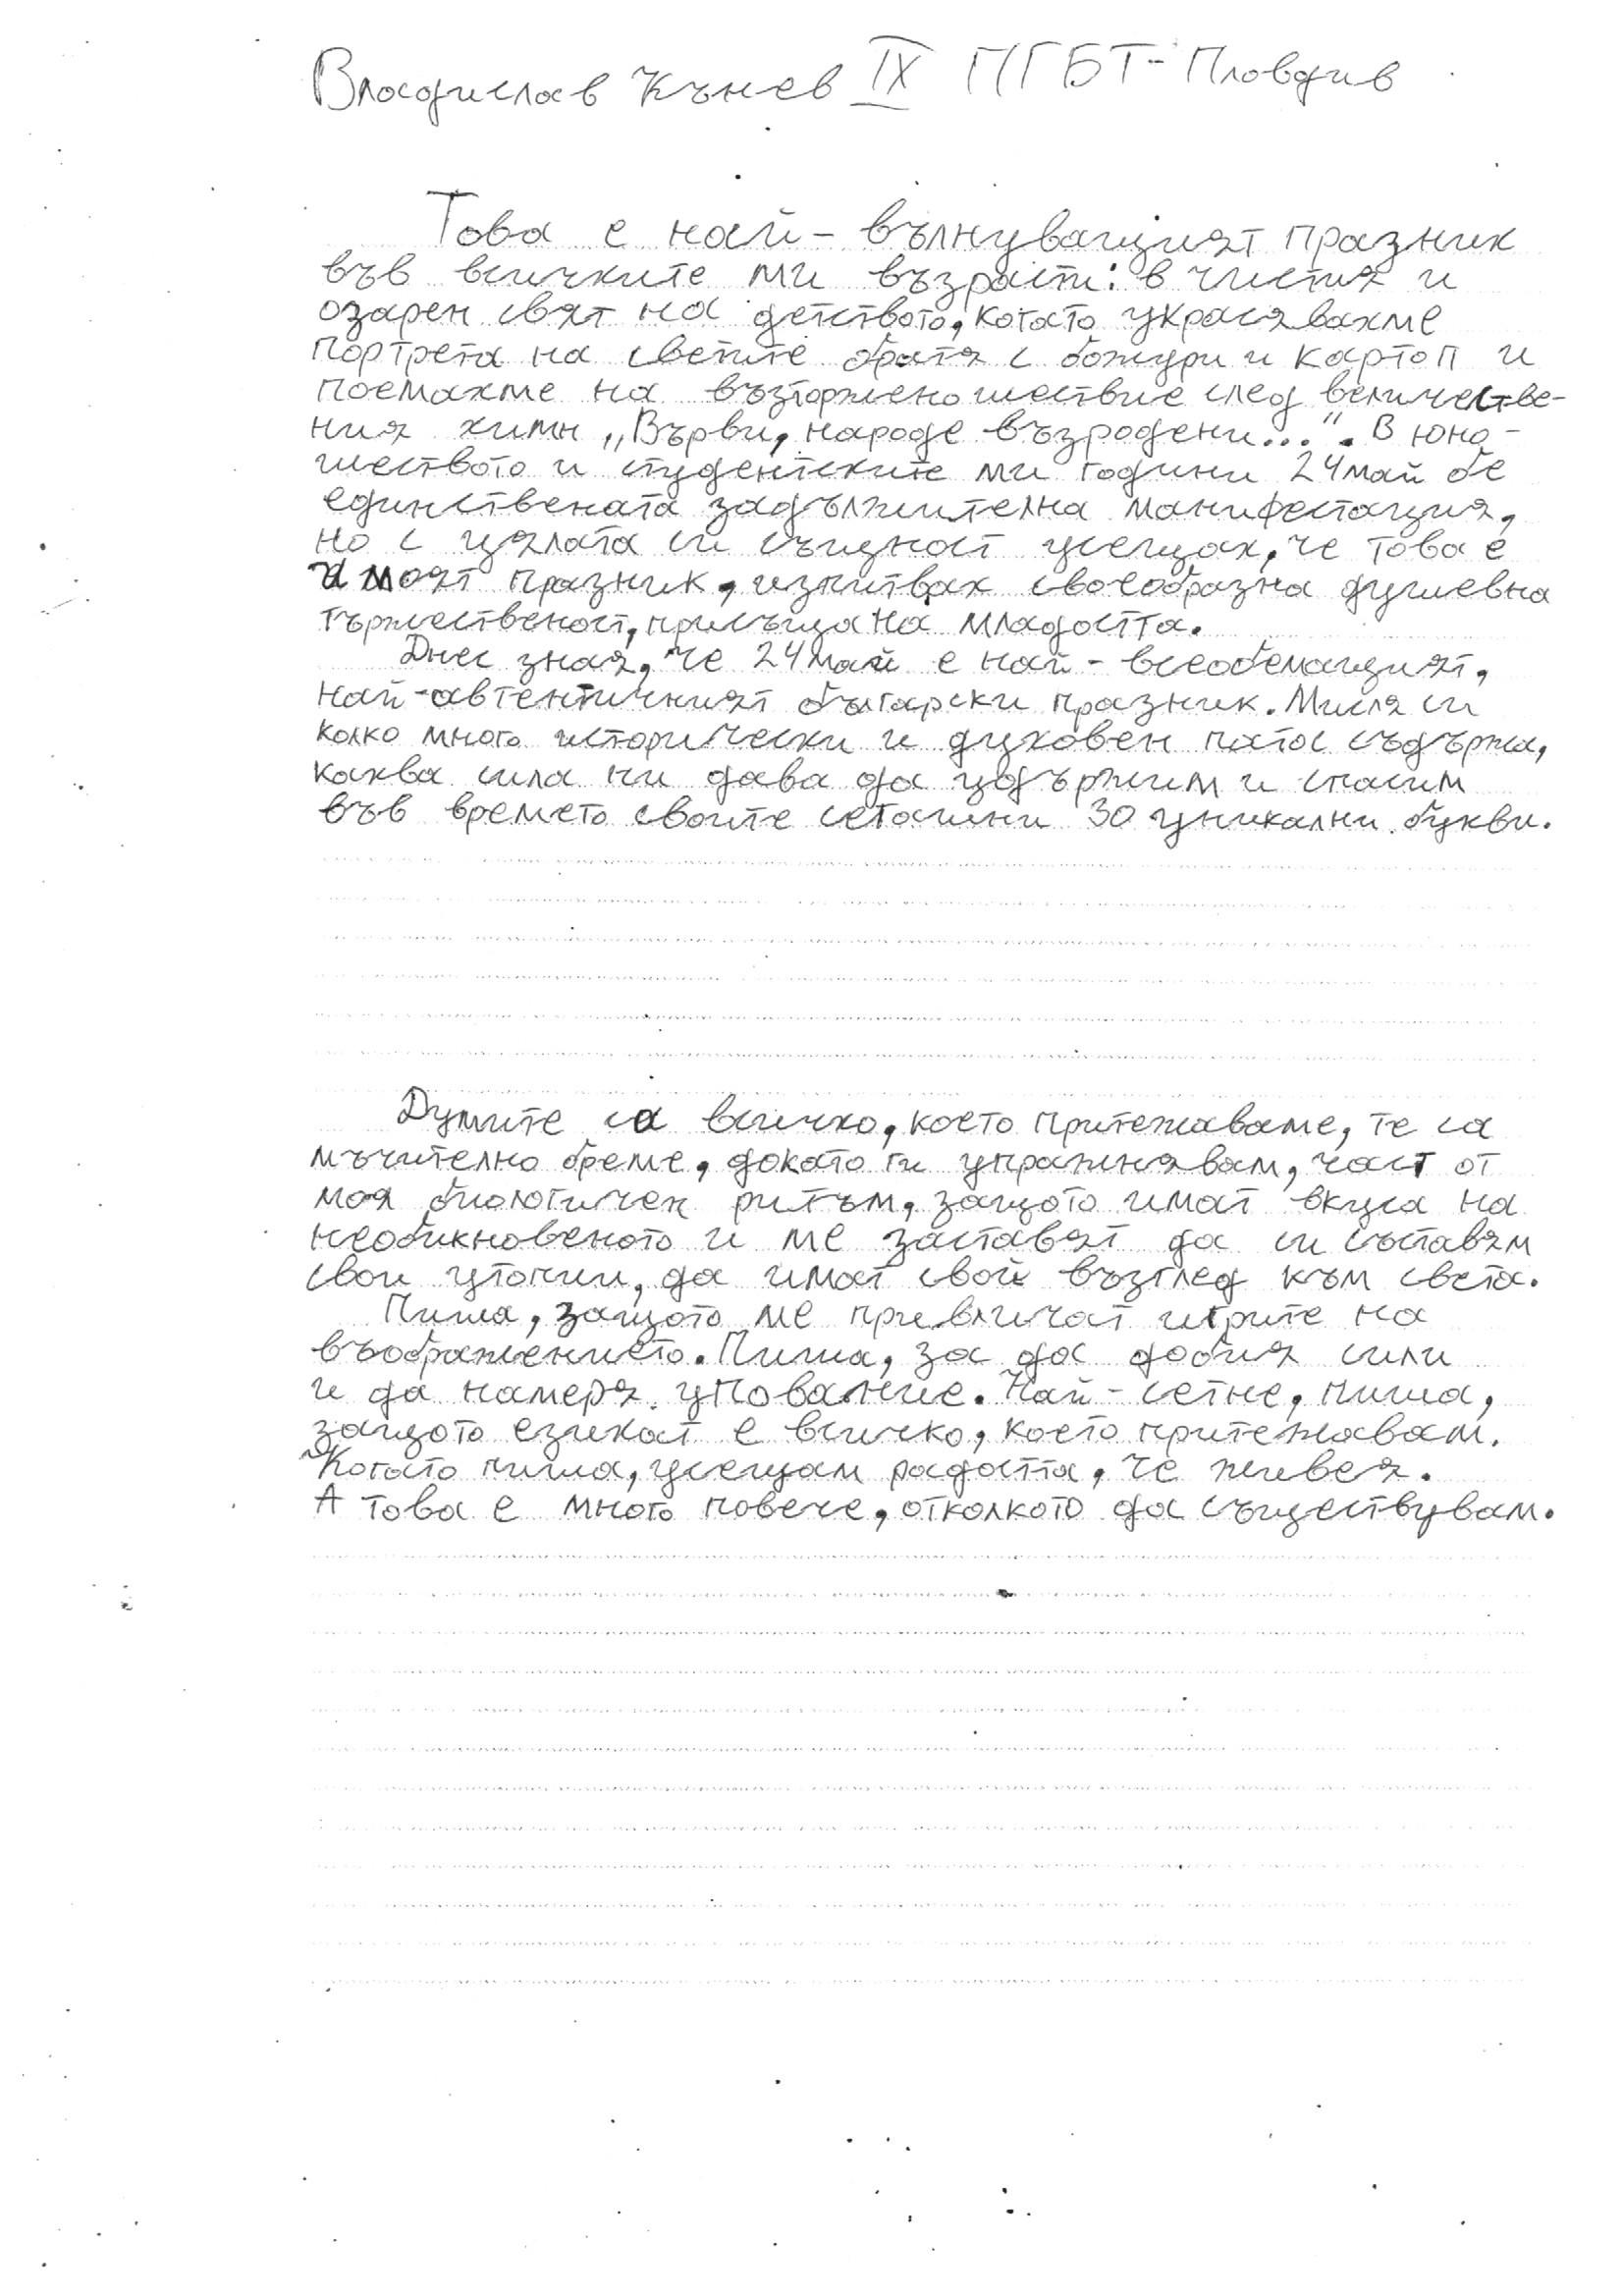 Владислав Кънев IX ПГБТ - Пловдив
Това е най - вълнуващият празник
във всичките ми възрасти: в чистия и
озарен свят на детството, когато украсявахме
портрета на светите братя с божури и картоп и
поемахме на възторжено шествие след величестве-
ния химн „Върви, народе възродени...". В юно-
шеството и студентските ми години 24 май бе
единствената задължителна манифестация,
но с цялата си същност усещах, че това е
и моят празник, изпитвах своеобразна душевна
тържественост, присъща на младостта.
Днес зная, че 24 май е най - всеобемащият,
най-автентичният български празник. Мисля си
колко много исторически и духовен патос съдържа,
каква сила ни дава да удържим и спасим
във времето своите сегашни 30 уникални букви.
Думите са всичко, което притежаваме, те са
мъчително бреме, докато ги упражнявам, част от
моя биологичен ритъм, защото имат вкуса на
необикновеното и ме заставят да си съставям
свои утопии, да имат свой възглед към света.
Пиша, защото ме привличат игрите на
въображението. Пиша, за да добия сили
и да намеря упование. Най - сетне, пиша,
защото езикът е всичко, което притежавам.
Когато пиша, усещам радостта, че живея.
А това е много повече, отколкото да съществувам.